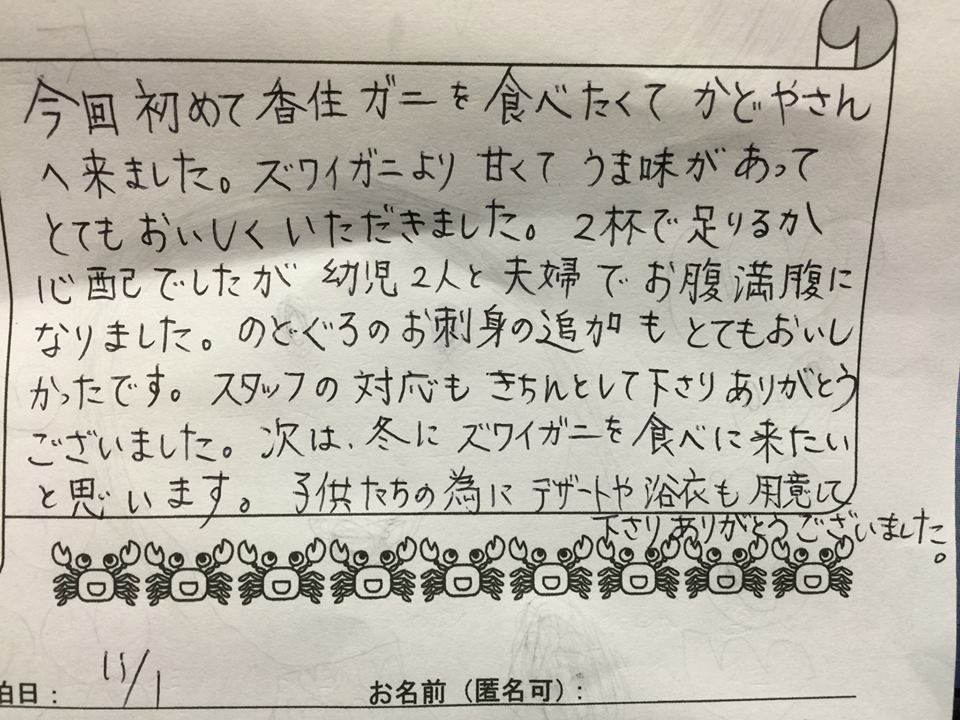 今回 初めて 香住ガニを 食べたくて かどやさん
へ来ました。ズワイガニより 甘くて うま味が あって
とても おいしく いただきました。2杯で足りるか
心配でしたが 幼児2人と 夫婦で お腹満腹に
なりました。のどぐろのお刺身の追加も とてもおいし
かったです。スタッフの 対応も きちんとして下さり ありがとう
ございました。次は、冬に ズワイガニを 食べに 来たい
と思います。子供たちの為に デザートや浴衣も 用意して
下さり ありがとうございました。
泊日：11/1
お名前（匿名可）：